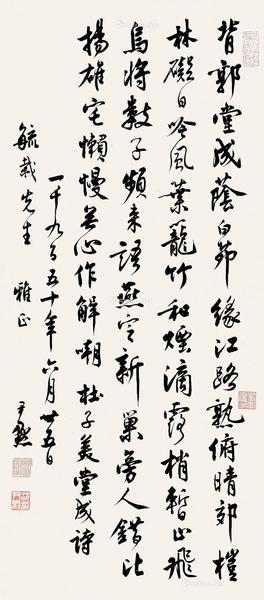 背郭堂成蔭白茆緣江路熟俯晴郊榿
林礙日吟風葉籠竹和煙滴露梢暫止飛
烏將數子頻來語燕定新巢旁人錯比
揚雄宅懶慢無心作解嘲杜子美堂成詩
一千九百五十年六月廿五日
毓哉先生雅正
尹默